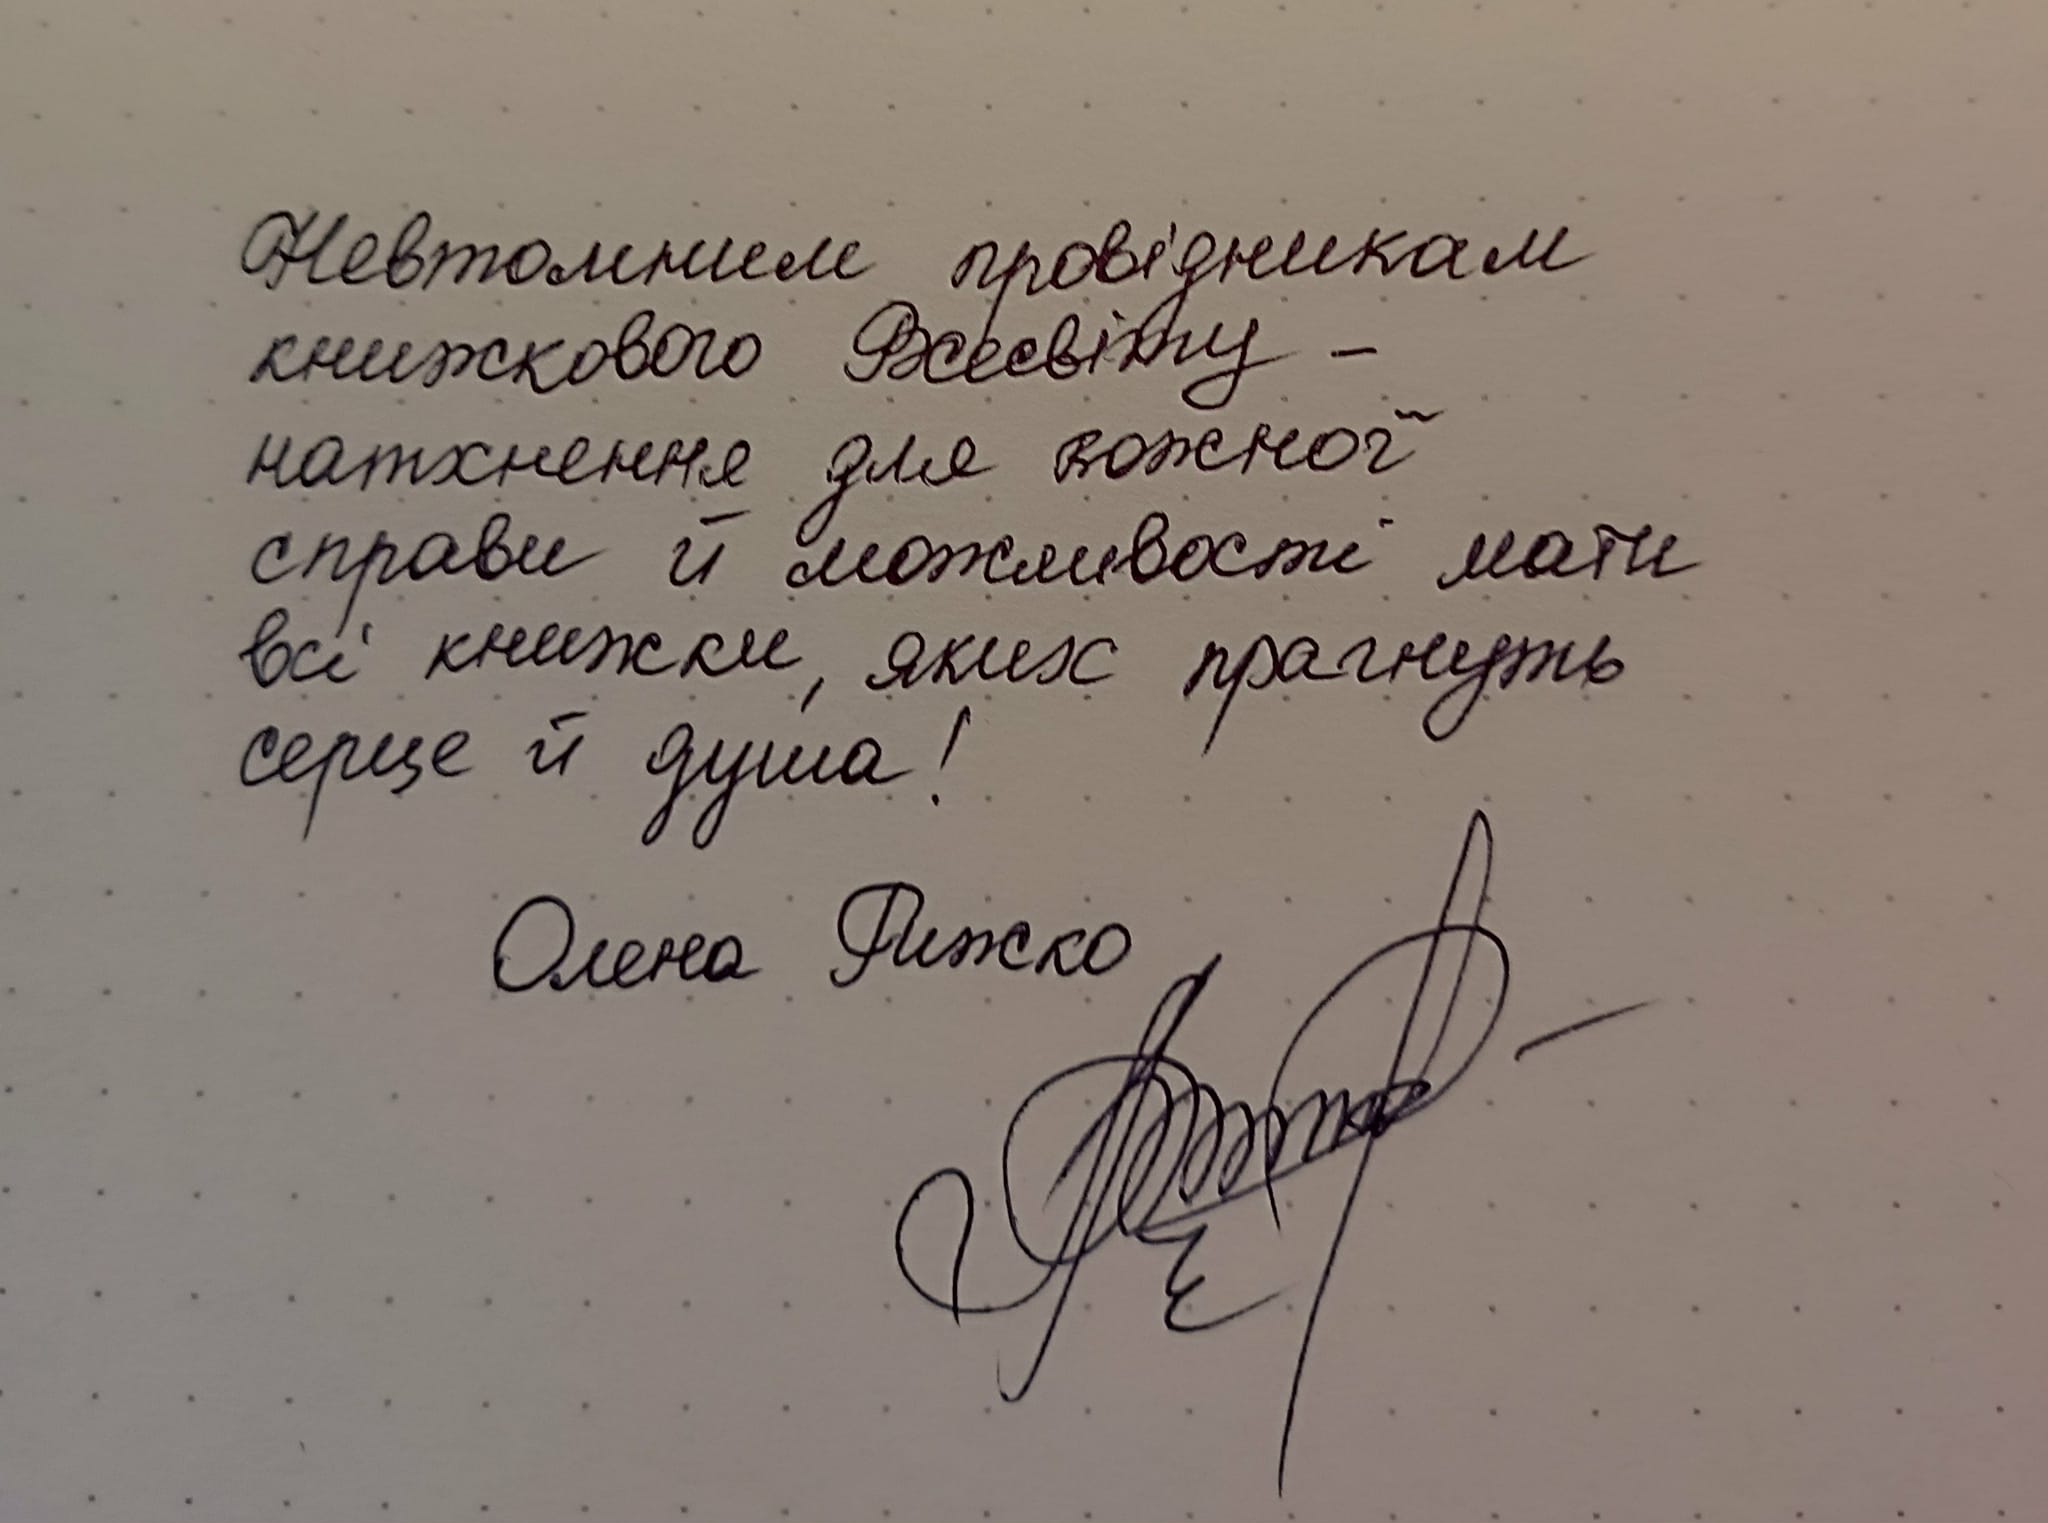 Невтомним провідникам
книжкового Всесвіту –
натхнення для кожної
справи й можливості мати
всі книжки, яких прагнуть
серце й душа!
Олена Рижко